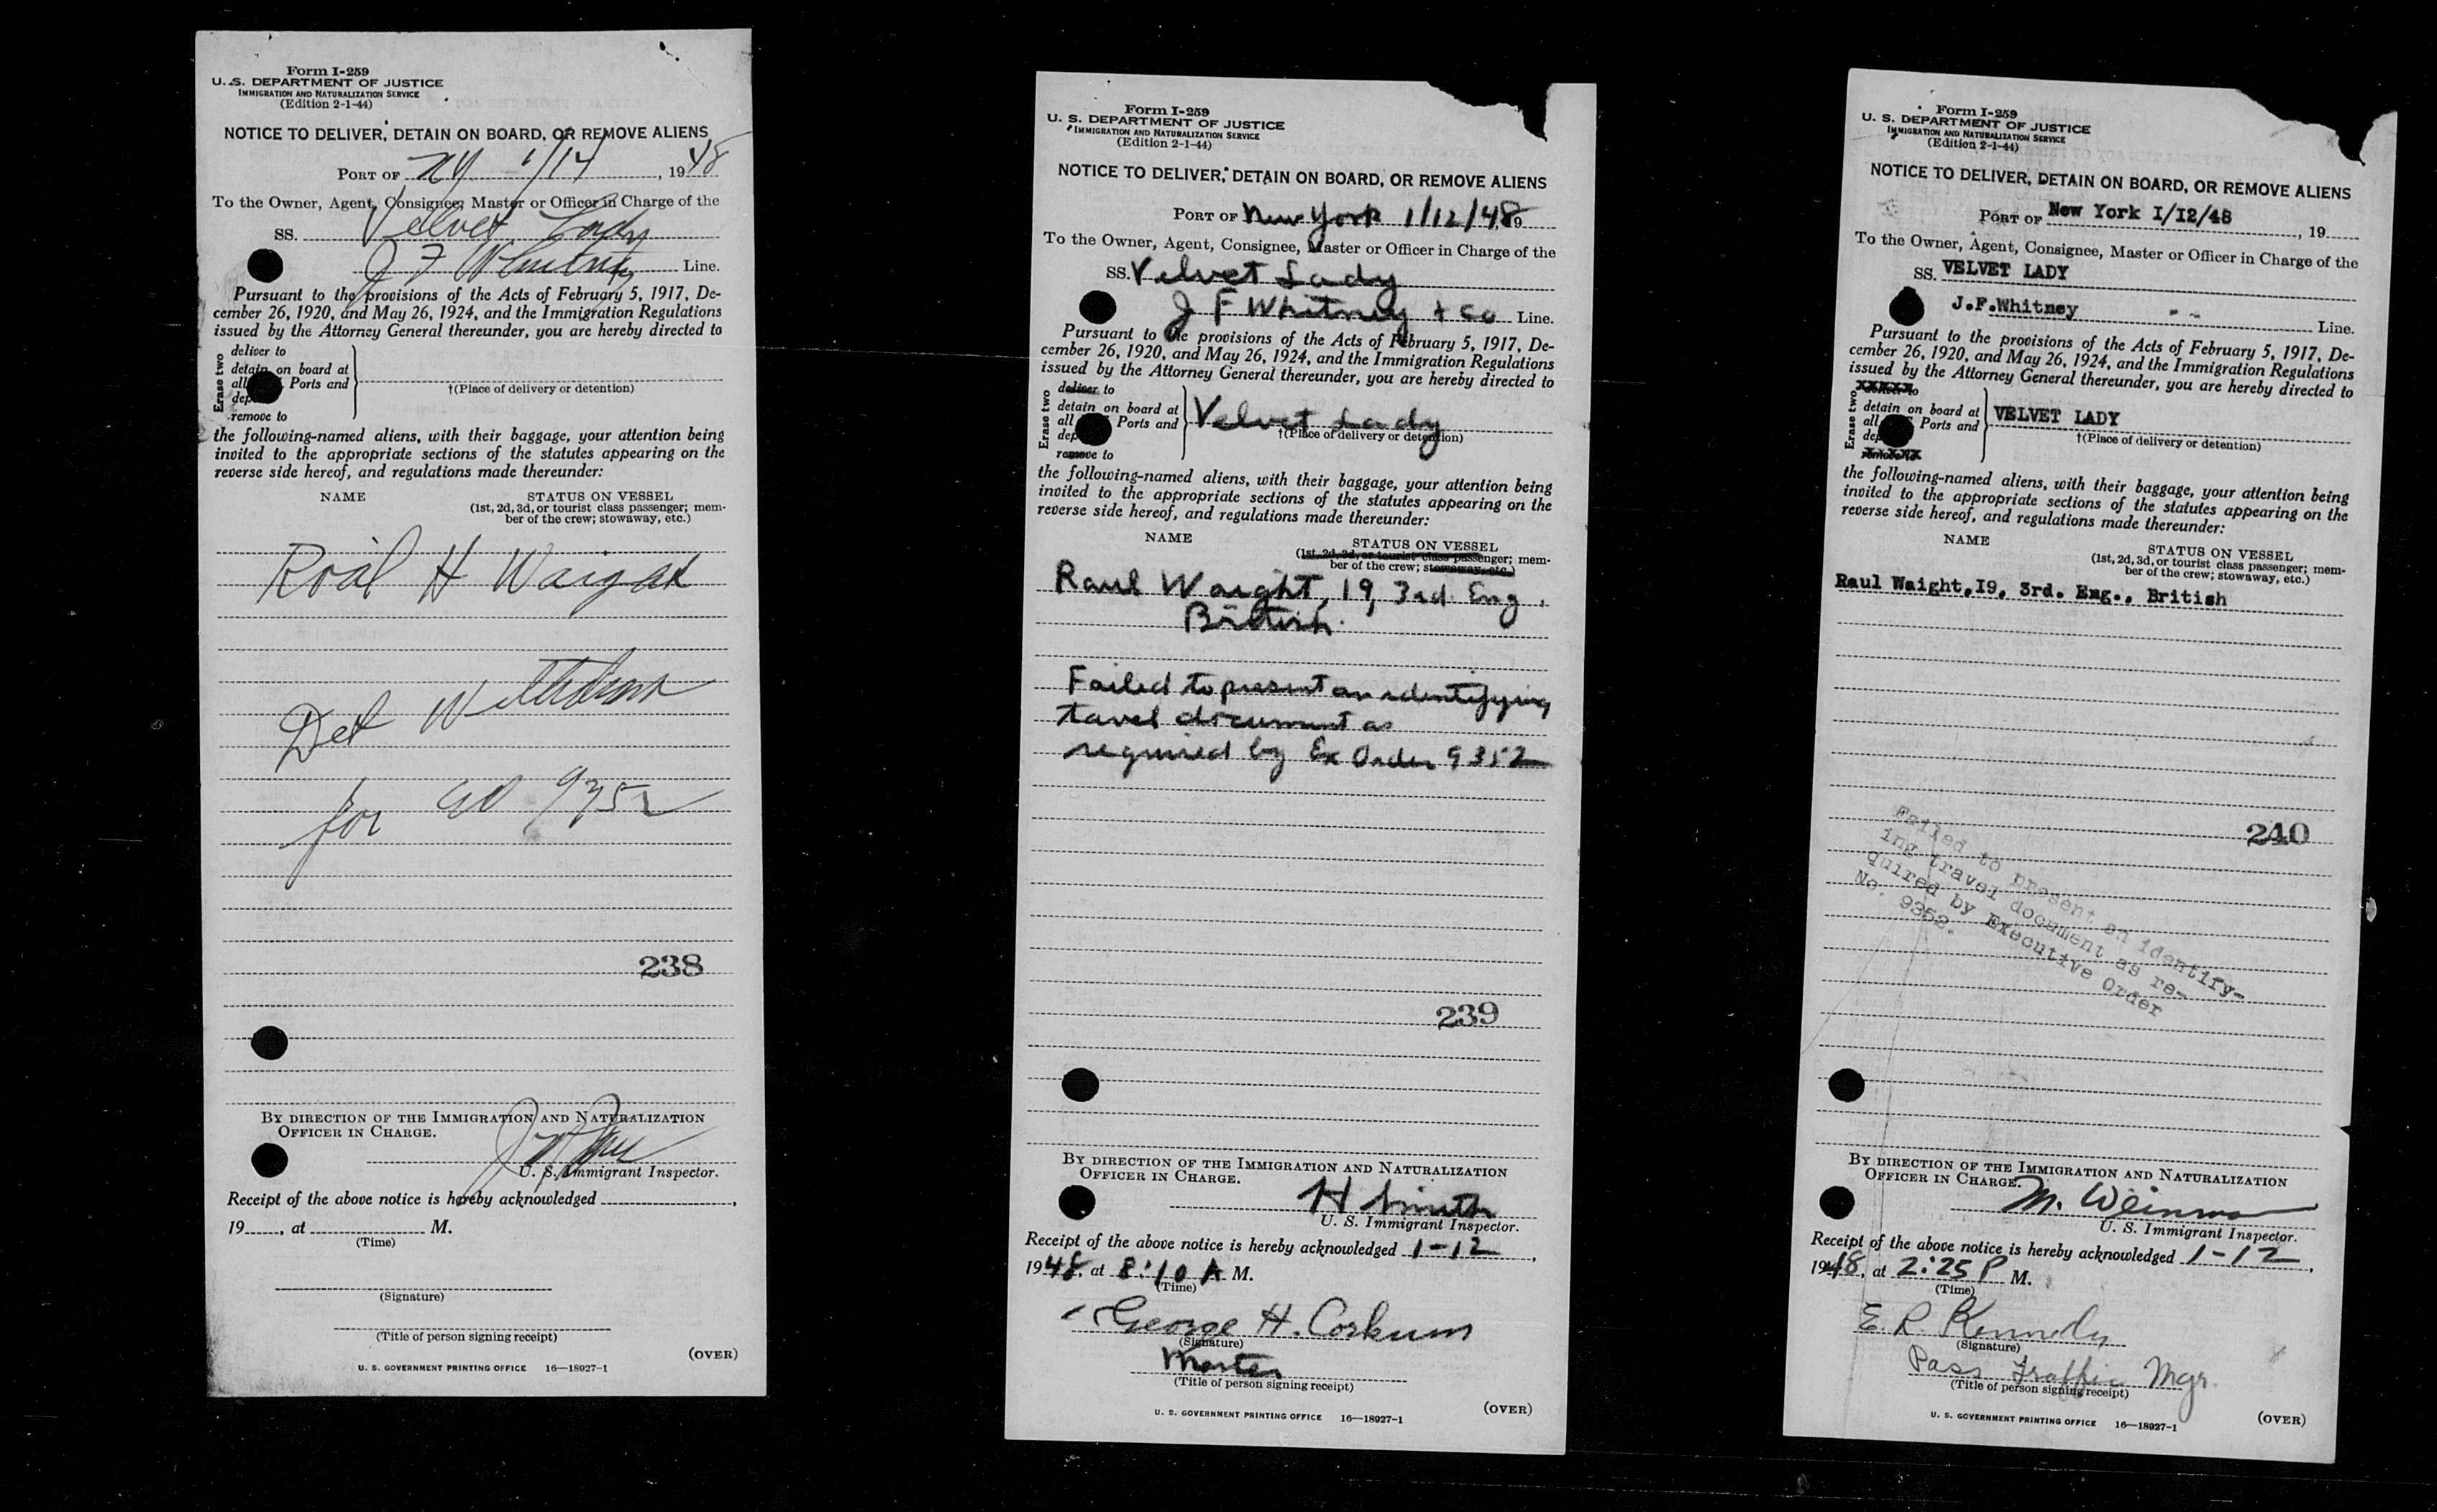 Form I-259
U. S. DEPARTMENT OF JUSTICE
IMMIGRATION AND NATURALIZATION SERVICE
(Edition 2-1-44)
NOTICE TO DELIVER, DETAIN ON BOARD, OR REMOVE ALIENS
PORT OF NY 1/14, 1948
To the Owner, Agent, Consignee, Master or Officer in Charge of the
SS. Velvet Lady
J F Whitney Line.
Pursuant to the provisions of the Acts of February 5, 1917, De-
cember 26, 1920, and May 26, 1924, and the Immigration Regulations
issued by the Attorney General thereunder, you are hereby directed to
Erase two
deliver to
detain on board at
all Ports and
dep
remove to
†(Place of delivery or detention)
the following-named aliens, with their baggage, your attention being
invited to the appropriate sections of the statutes appearing on the
reverse side hereof, and regulations made thereunder:
NAME STATUS ON VESSEL
(1st, 2d, 3d, or tourist class passenger; mem-
ber of the crew; stowaway, etc.)
H
Det Withdrawn
for 9352
238
BY DIRECTION OF THE IMMIGRATION AND NATURALIZATION
OFFICER IN CHARGE.
U. S. Immigrant Inspector.
Receipt of the above notice is hereby acknowledged ,
19 , at M.
(Time)
(Signature)
(Title of person signing receipt)
(OVER)
U. S. GOVERNMENT PRINTING OFFICE 16—18927-1
Form I-259
U. S. DEPARTMENT OF JUSTICE
IMMIGRATION AND NATURALIZATION SERVICE
(Edition 2-1-44)
NOTICE TO DELIVER, DETAIN ON BOARD, OR REMOVE ALIENS
PORT OF New York 1/12/48 19
To the Owner, Agent, Consignee, Master or Officer in Charge of the
SS. Velvet Lady
J F Whitney + Co Line.
Pursuant to the provisions of the Acts of February 5, 1917, De-
cember 26, 1920, and May 26, 1924, and the Immigration Regulations
issued by the Attorney General thereunder, you are hereby directed to
Erase two
deliver to
detain on board at
all Ports and
dep
remove to
Velvet Lady
†(Place of delivery or detention)
the following-named aliens, with their baggage, your attention being
invited to the appropriate sections of the statutes appearing on the
reverse side hereof, and regulations made thereunder:
NAME STATUS ON VESSEL
(1st, 2d, 3d, or tourist class passenger; mem-
ber of the crew; stowaway, etc.)
Raul Waight, 19, 3rd Eng.
British.
Failed to present an identifying
tavel document as
required by Ex Order 9352
239
BY DIRECTION OF THE IMMIGRATION AND NATURALIZATION
OFFICER IN CHARGE.
H Smith
U. S. Immigrant Inspector.
Receipt of the above notice is hereby acknowledged 1-12,
1948, at 8:10 A M.
(Time)
George H. Corkum
(Signature)
Master
(Title of person signing receipt)
(OVER)
U. S. GOVERNMENT PRINTING OFFICE 16—18927-1
Form I-259
U. S. DEPARTMENT OF JUSTICE
IMMIGRATION AND NATURALIZATION SERVICE
(Edition 2-1-44)
NOTICE TO DELIVER, DETAIN ON BOARD, OR REMOVE ALIENS
PORT OF New York I/I2/48, 19
To the Owner, Agent, Consignee, Master or Officer in Charge of the
SS. VELVET LADY
J.F.Whitney -- Line.
Pursuant to the provisions of the Acts of February 5, 1917, De-
cember 26, 1920, and May 26, 1924, and the Immigration Regulations
issued by the Attorney General thereunder, you are hereby directed to
Erase two
detain on board at
all Ports and
dep
VELVET LADY
†(Place of delivery or detention)
the following-named aliens, with their baggage, your attention being
invited to the appropriate sections of the statutes appearing on the
reverse side hereof, and regulations made thereunder:
NAME STATUS ON VESSEL
(1st, 2d, 3d, or tourist class passenger; mem-
ber of the crew; stowaway, etc.)
Raul Waight,I9, 3rd. Eng., British
240
Failed to present an identify-
ing travel document as re-
quired by Executive Order
No. 9352.
BY DIRECTION OF THE IMMIGRATION AND NATURALIZATION
OFFICER IN CHARGE.
M.
U. S. Immigrant Inspector.
Receipt of the above notice is hereby acknowledged 1-12,
1948, at 2:25 P M.
(Time)
E. R. Kennedy
(Signature)
Pass Traffic Mgr.
(Title of person signing receipt)
(OVER)
U. S. GOVERNMENT PRINTING OFFICE 16—18927-1